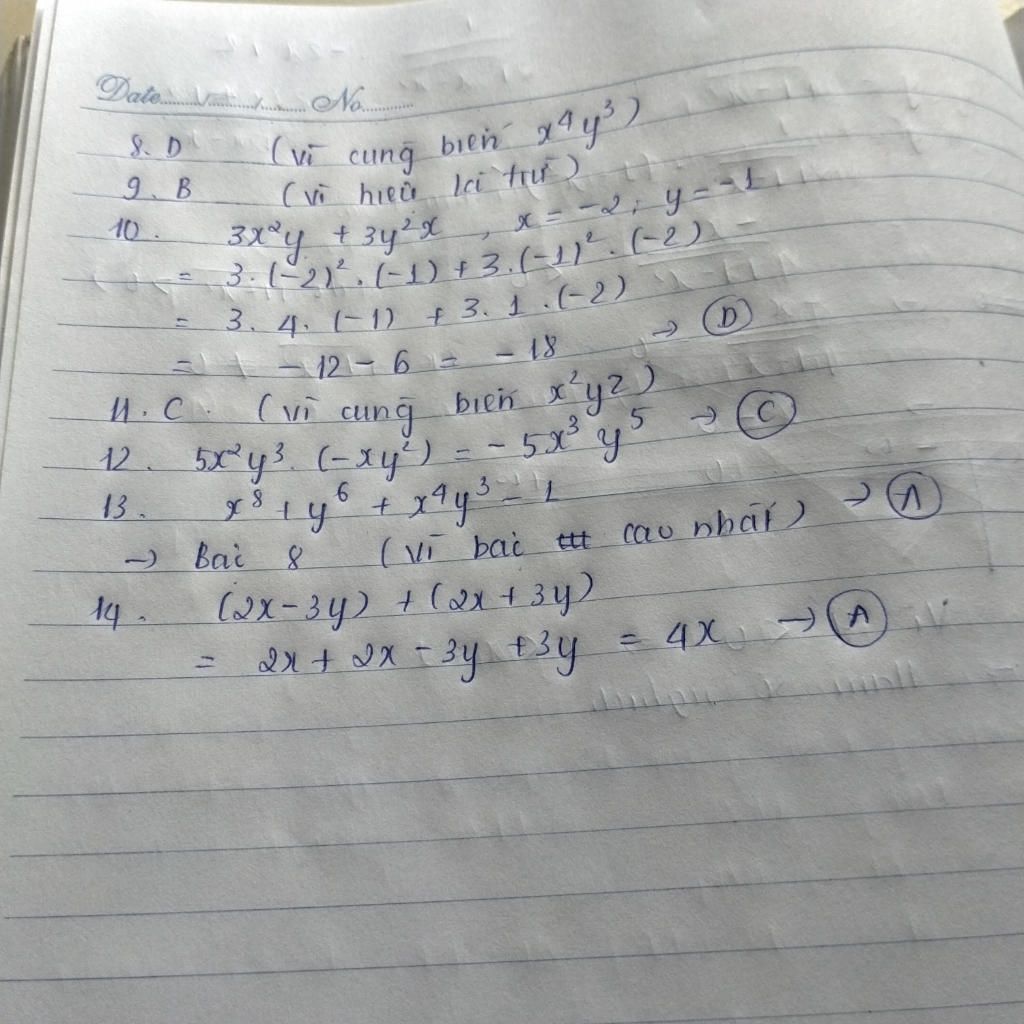 Date............ No............
8. D (vì cùng biến x⁴y³)
9. B (vì hiệu là trừ)
10. 3x²y + 3y²x , x = -2; y = -1
= 3.(-2)².(-1) + 3.(-1)².(-2)
= 3. 4. (-1) + 3. 1 .(-2)
= -12 - 6 = -18 → D
11. C. (vì cùng biến x²yz)
12. 5x²y³. (-xy²) = -5x³y⁵ → C
13. x⁸ + y⁶ + x⁴y³ - 1
→ Bậc 8 (vì bậc cao nhất) → A
14. (2x-3y) + (2x+3y)
= 2x + 2x - 3y + 3y = 4x → A